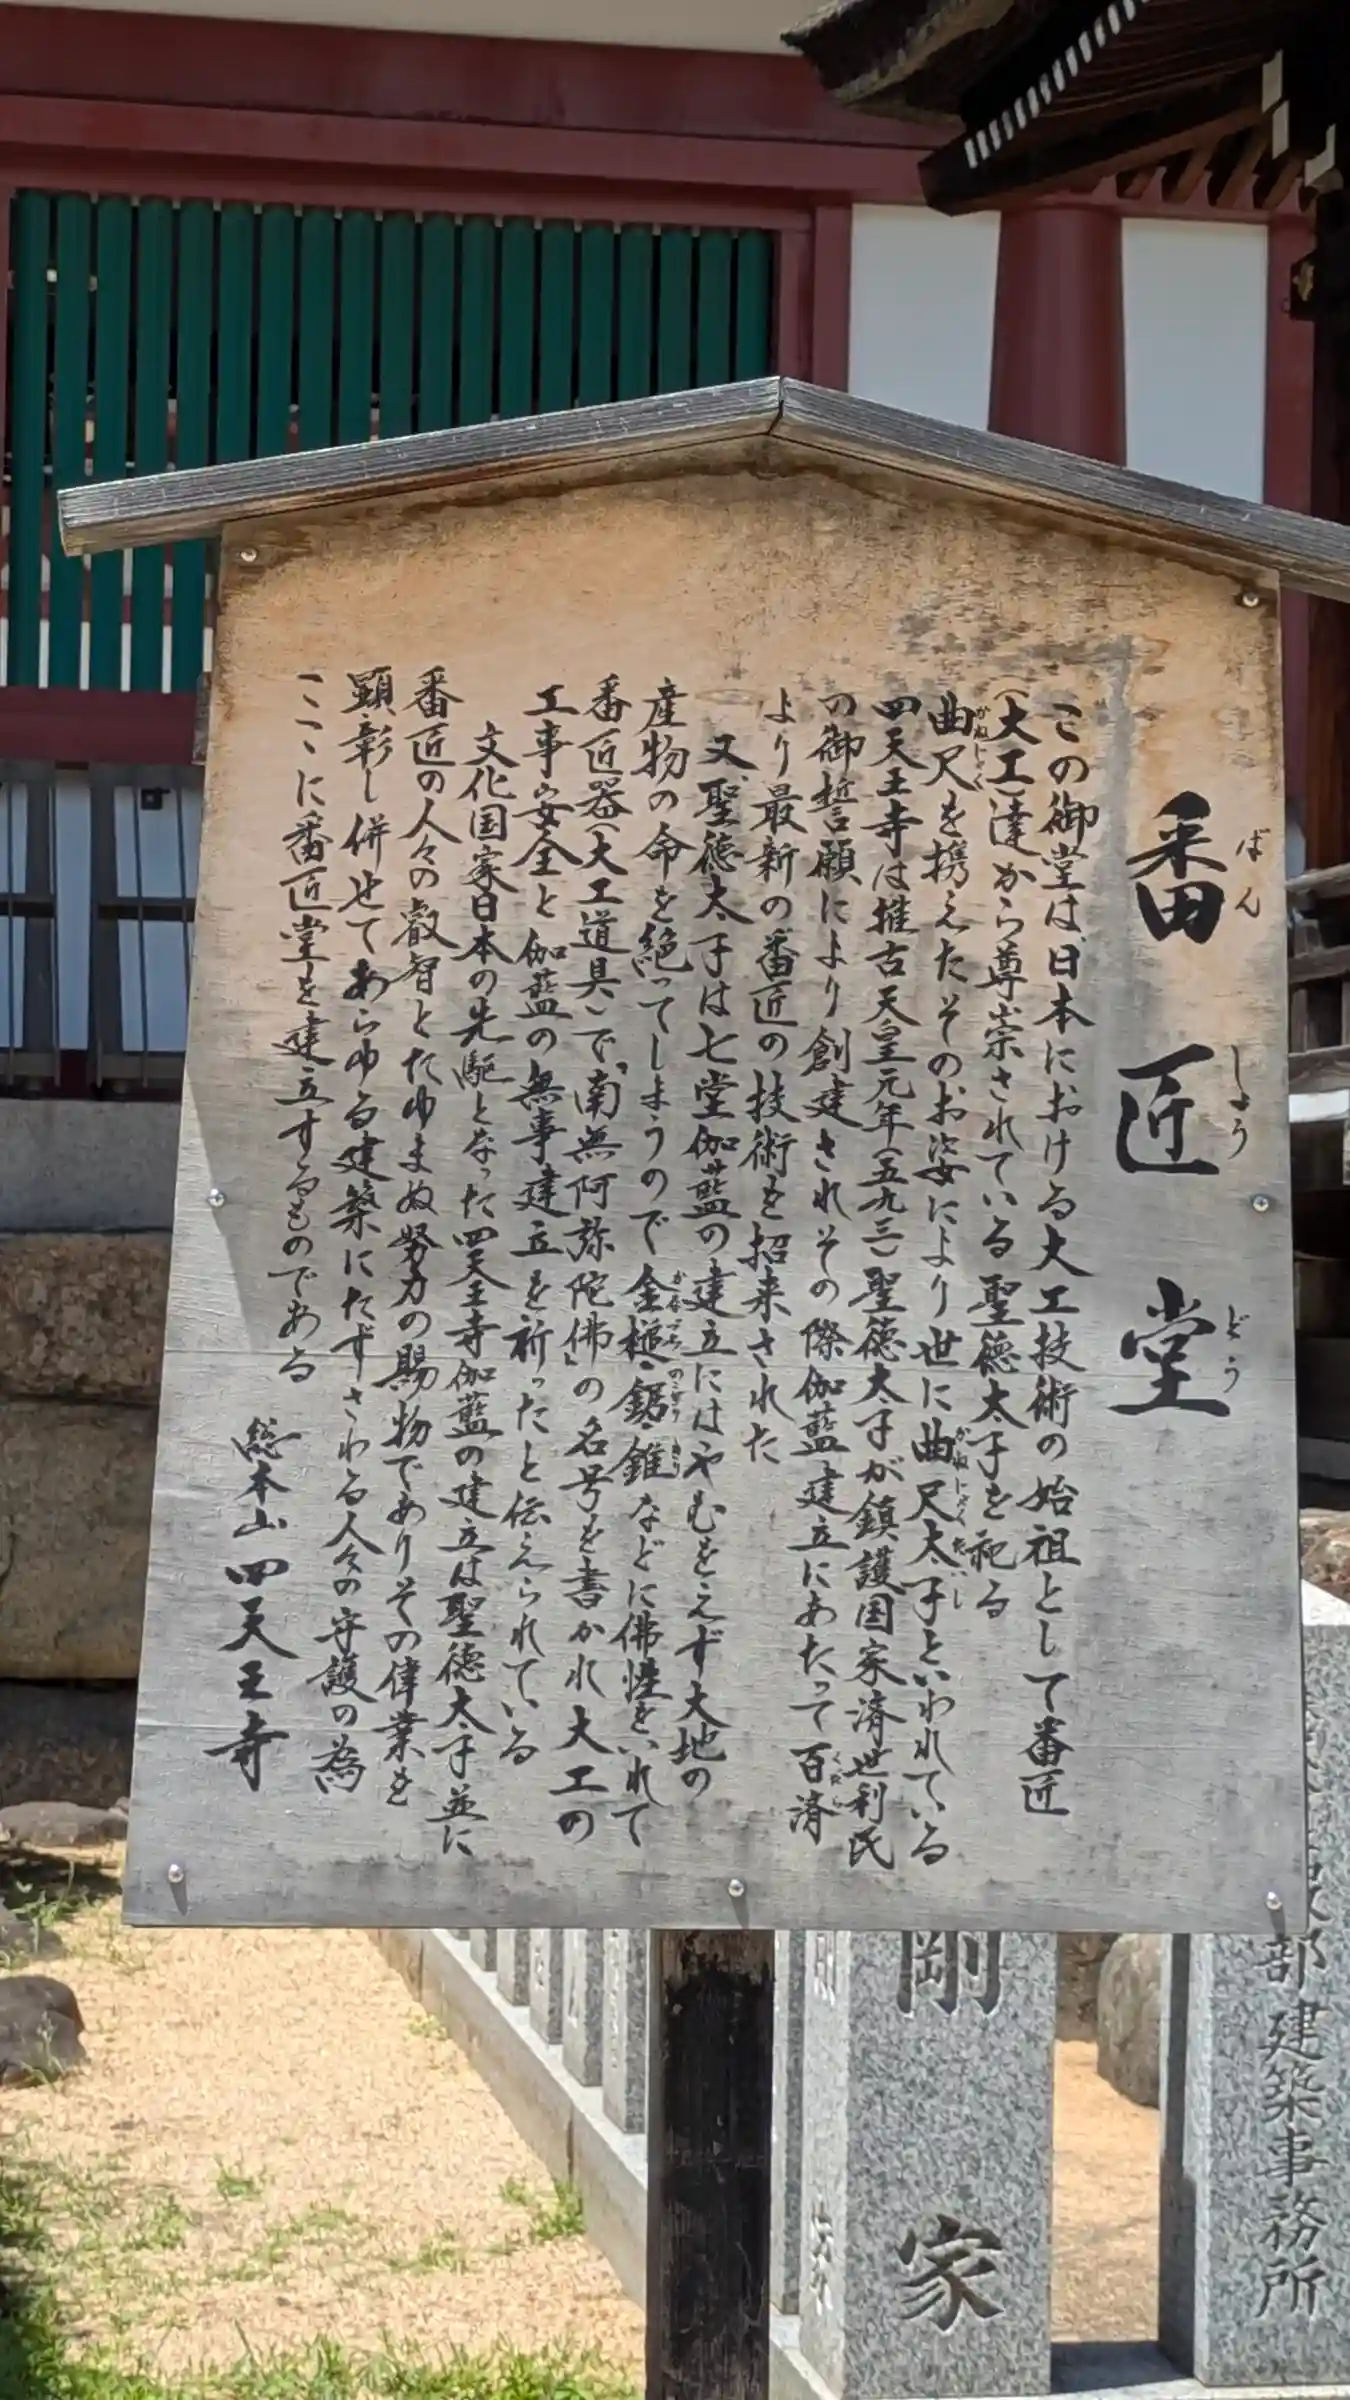 番匠堂
ばんしょうどう
この御堂は、日本における大工技術の始祖として番匠
(大工)達から尊崇されている聖徳太子を祀る
曲尺を携えたそのお姿により世に曲尺太子といわれている
かねじゃく
かねじゃくたいし
四天王寺は推古天皇元年(五九三)聖徳太子が鎮護国家済世利民
の御誓願により創建されその際伽藍建立にあたって百済
くだら
より最新の番匠の技術を招来された
又、聖徳太子は七堂伽藍の建立にはやむをえず大地の
産物の命を絶ってしまうので金槌・鋸・錐などに佛性をいれて
かなづち
のこぎり
きり
番匠器(大工道具)で「南無阿弥陀佛」の名号を書かれ大工の
工事安全と伽藍の無事建立を祈ったと伝えられている
文化国家日本の先駆となった四天王寺伽藍の建立は聖徳太子並に
番匠の人々の叡智とたゆまぬ努力の賜物でありその偉業を
顕彰し併せてあらゆる建築にたずさわる人々の守護の為
ここに番匠堂を建立するものである
総本山四天王寺
剛
家
部建築事務所